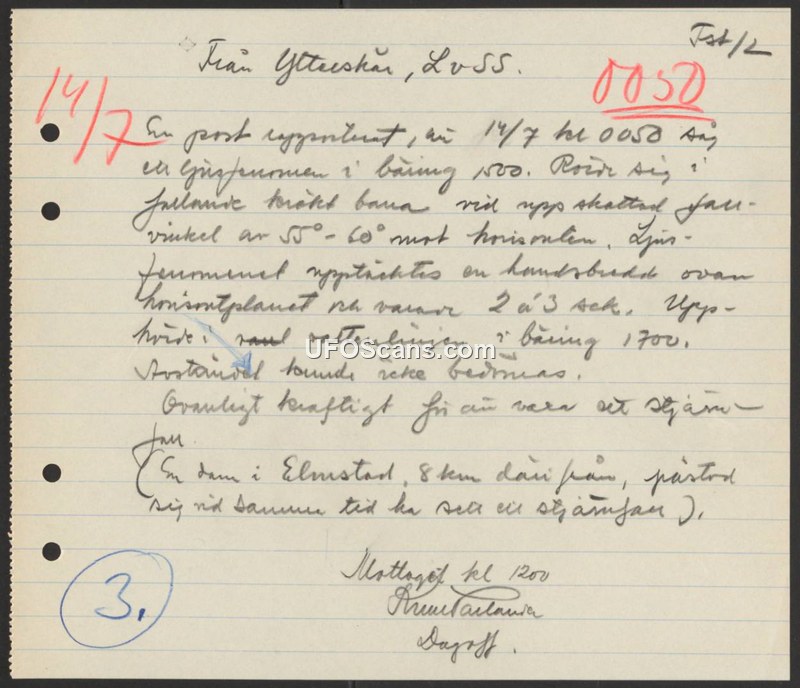 Fst/L
Från Ytterskär, LvSS.
0050
14/7
En post rapporterat, att 14/7 kl 0050 såg
ett ljusfenomen i bäring 1500. Rörde sig i
fallande krökt bana vid uppskattad fall-
vinkel av 55° - 60° mot horisonten. Ljus-
fenomenet upptäcktes en handsbredd ovan
horisontplanet och varade 2 á 3 sek. Upp-
hörde i vattenlinjen i bäring 1700.
UFOScans.com
Avståndet kunde icke bedömas.
Ovanligt kraftigt för att vara ett stjärn-
fall.
(En dam i Elmstad, 8 km därifrån, påstod
sig vid samma tid ha sett ett stjärnfall).
Mottaget kl 1200
Dagoff.
3.